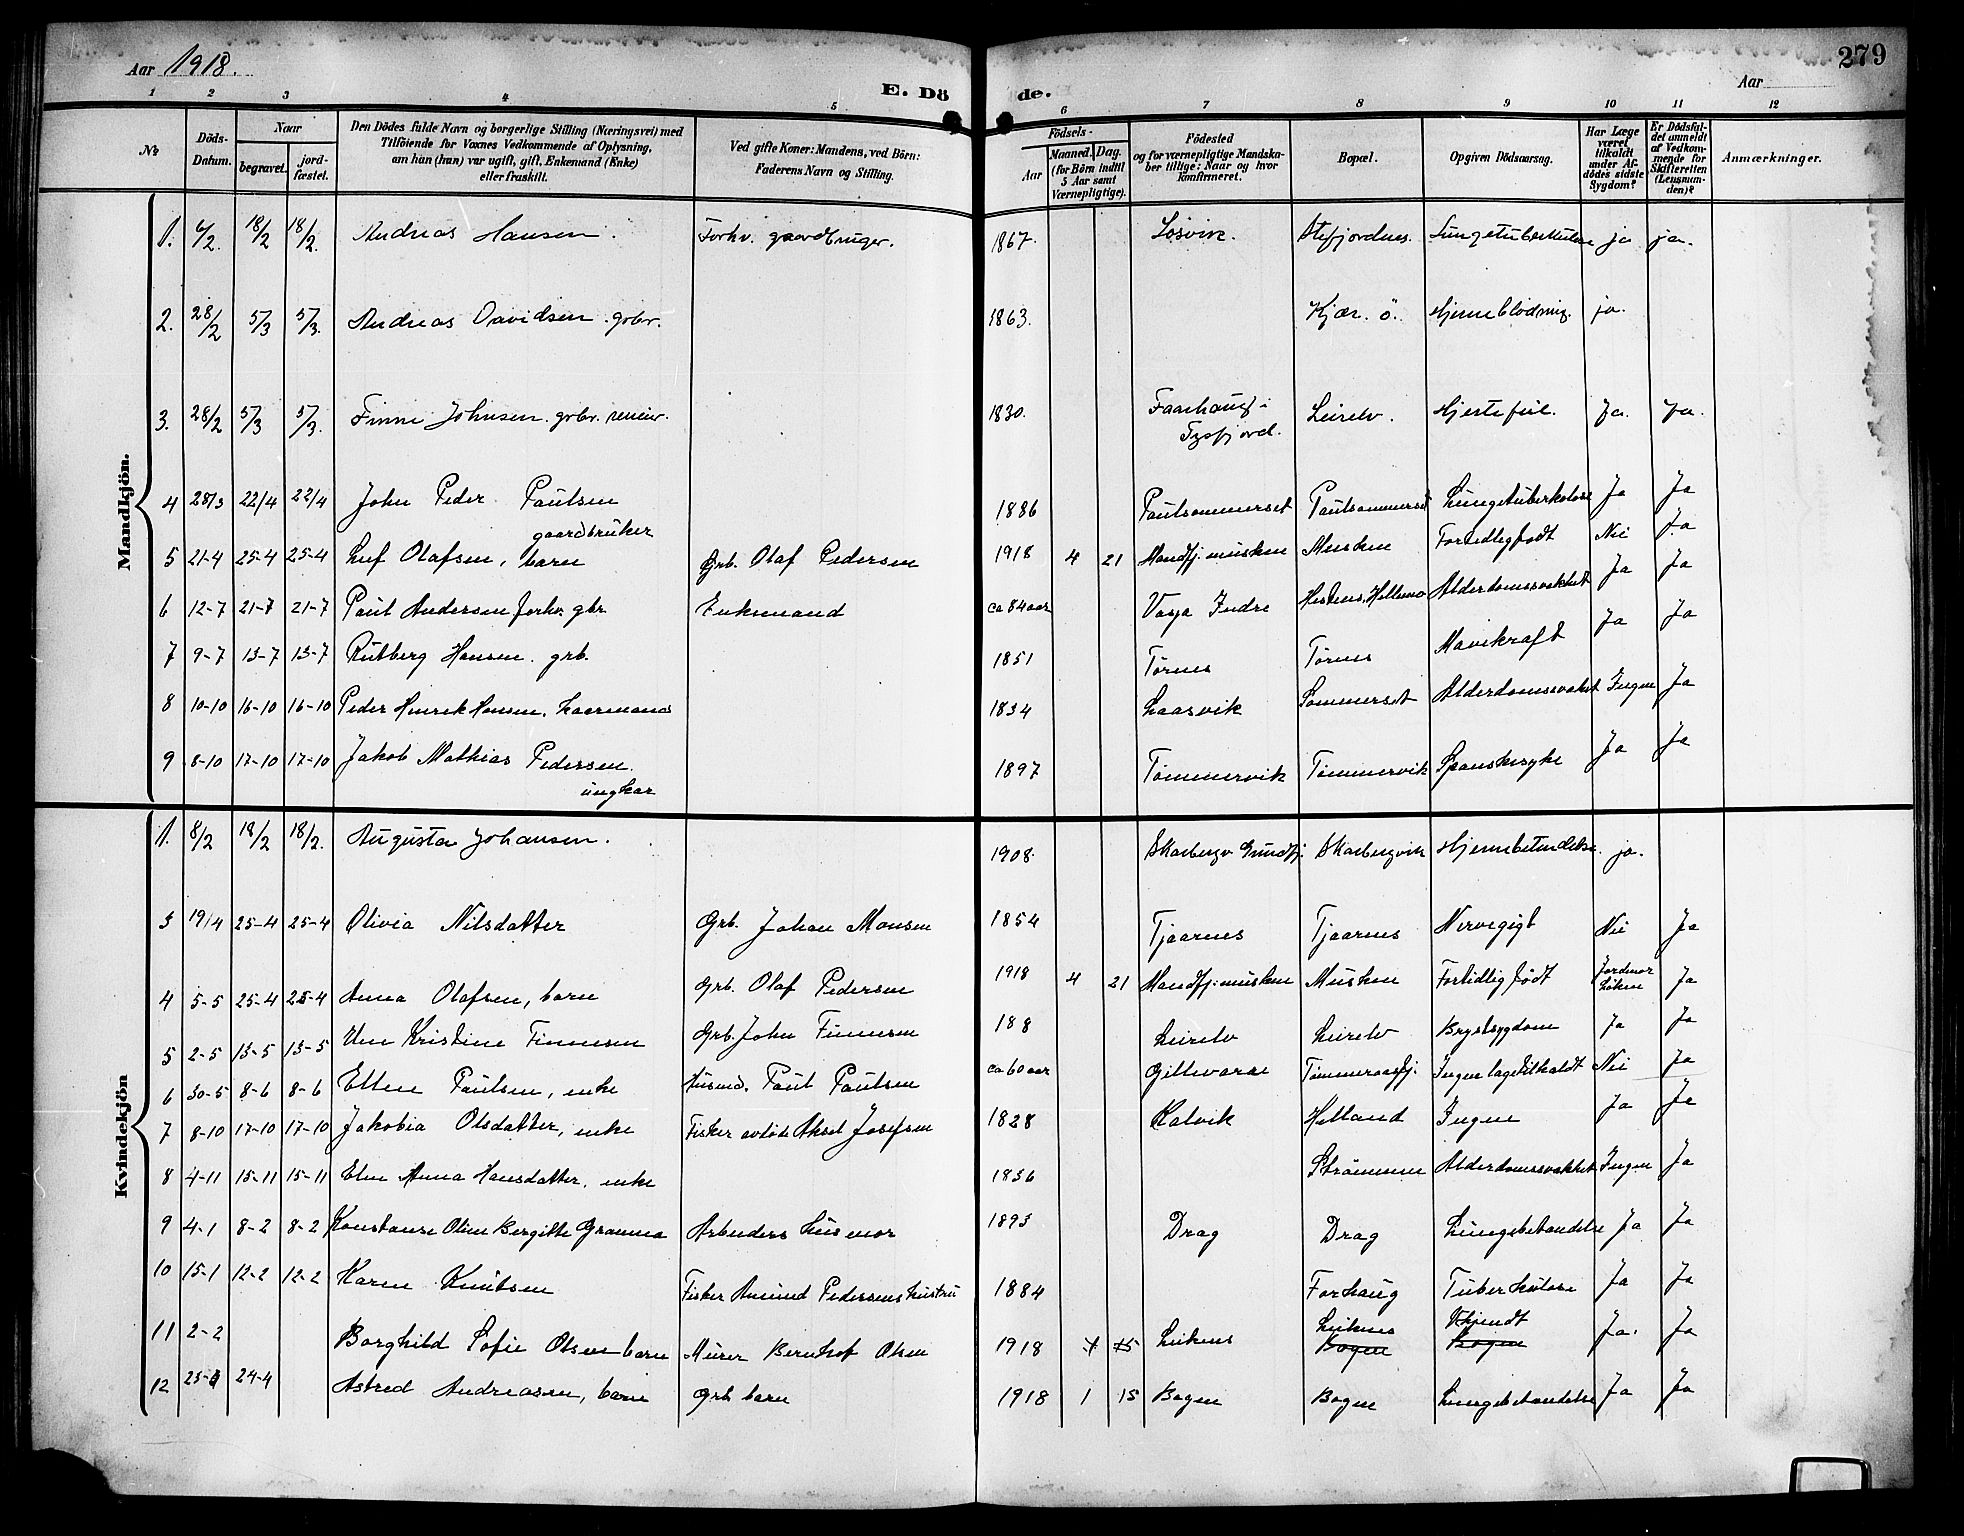 Aar 1918.
279
Aar
E. Dö de.
1 2 3 4 5 6 7 8 9 10 11 12
No
Döds-Datum.
Naar
begravet.
jord-fæstet.
Den Dödes fulde Navn og borgerlige Stilling (Næringsvei) med
Tilföiende for Voxnes Vedkommende af Oplysning,
om han (hun) var ugift, gift, Enkemand (Enke)
eller fraskilt.
Ved gifte Koner: Mandens, ved Börn:
Faderens Navn og Stilling.
Födsels-
Aar
Maaned. Dag.
(for Börn indtil
5 Aar samt
Værnepligtige).
Födested
og for værnepligtige Mandska-
ber tillige: Naar og hvor
konfirmeret.
Bopæl.
Opgiven Dödsaarsag.
Har Læge
været
tilkaldt
under Af-
dödes sidste
Sygdom?
Er Dödsfal-
det anmeldt
af Vedkom-
mende for
Skifteretten
(Lensman-
den)?
Anmærkninger.
Mandkjön.
1. 6/2 18/2 18/2. Andreas Hansen. Forhv. gaardbruger. 1867. Løsvik. Stefjordnes. Lungetuberkulose ja ja.
2. 28/2 5/3 5/3. Andreas Davidsen. grbr. 1863. Kjær. ö. Hjerneblödning. ja.
3. 28/2 5/3 5/3. Finne Johnsen. grbr. 1830. Tysfjord. Leirelv. Hjertefeil. Ja. Ja.
4 28/3 22/4 22/4 John Peder Paulsen
gaardbruker 1886 Paulsommerset Paulsommerset Lungetuberkolose Ja Ja
5 21-4 25-4 25-4 Leif Olafsen, barn Grb. Olaf Pedersen 1918 4 21 Mandfj. musken Musken Fortidlig født Nei Ja
6 12-7 21-7 21-7 Paul Andersen forhv. gbr Enkemand ca 84 aar Vasja Indre Hellemo Alderdomssvakhet Ja Ja
7 9-7 13-7 13-7 Rutberg Hansen. grb. 1851 Tørnes Tørnes Mavekraft Ja Ja
8 10-10 16-10 16-10 Peder Henrik Hansen. 1834 Laasvik Sommerset Alderdomssvakhet Ingen Ja
9 8-10 17-10 17-10 Jakob Mathias Pedersen.
ungkar 1897 Tømmervik Tømmervik Spanskesyke Ja Ja
Kvindekjön
1. 8/2 18/2 18/2. Augusta Johansen. 1908. Skarbergv Grundfj. Skarbergvik Hjernebetendelse. ja.
3 19/4 25-4 25-4 Olivia Nilsdatter Grb. Johan Monsen 1854 Tjaarnes Tjaarnes Nervegigt Nei Ja
4 5-5 25-4 25-4 Anna Olafsen, barn Grb. Olaf Pedersen 1918 4 21 Mandfj. musken Musken Fortidlig født Jordmor Ja
5 2-5 13-5 13-5 Kristine Finnesen Grb. John Finnesen 188 Leirelv Leirelv Brystsygdom Ja Ja
6 30-5 8-6 8-6 Ellen Paulsen, enke Husmd. Paul Paulsen ca 60 aar Gillevarae Tømmeraasfj. Ingen læge tilkaldt Nei Ja
7 8-10 17-10 17-10 Jakobia Olsdatter, enke Fisker avdöde Aksel Josefsen 1828 Kalvik Helland Ingen Ja Ja
8 4-11 15-11 15-11 Elen Anna Hansdatter, enke 1836 Strømmen Alderdomssvakhet Ingen Ja
9 4-1 8-2 8-2 Konstanse Oline Bergitte Gramma Arbeiders husmor 1893 Drag Drag Lungebetændelse Ja Ja
10 15-1 12-2 12-2 Karen Knutsen Fisker Amund Pedersens hustru 1884 Forhaug Tuberkulose Ja Ja
11 2-2 Borghild Sofie Olsen barn Murer Bernhof Olsen 1918 1 15 Leiknes Leiknes Bogen Ukjendt Bogen Ja. Ja
12 25-4 24-4 Astred Andreasen, barn Grb barn 1918 1 15 Bogen Bogen Lungebetændelse Ja Ja